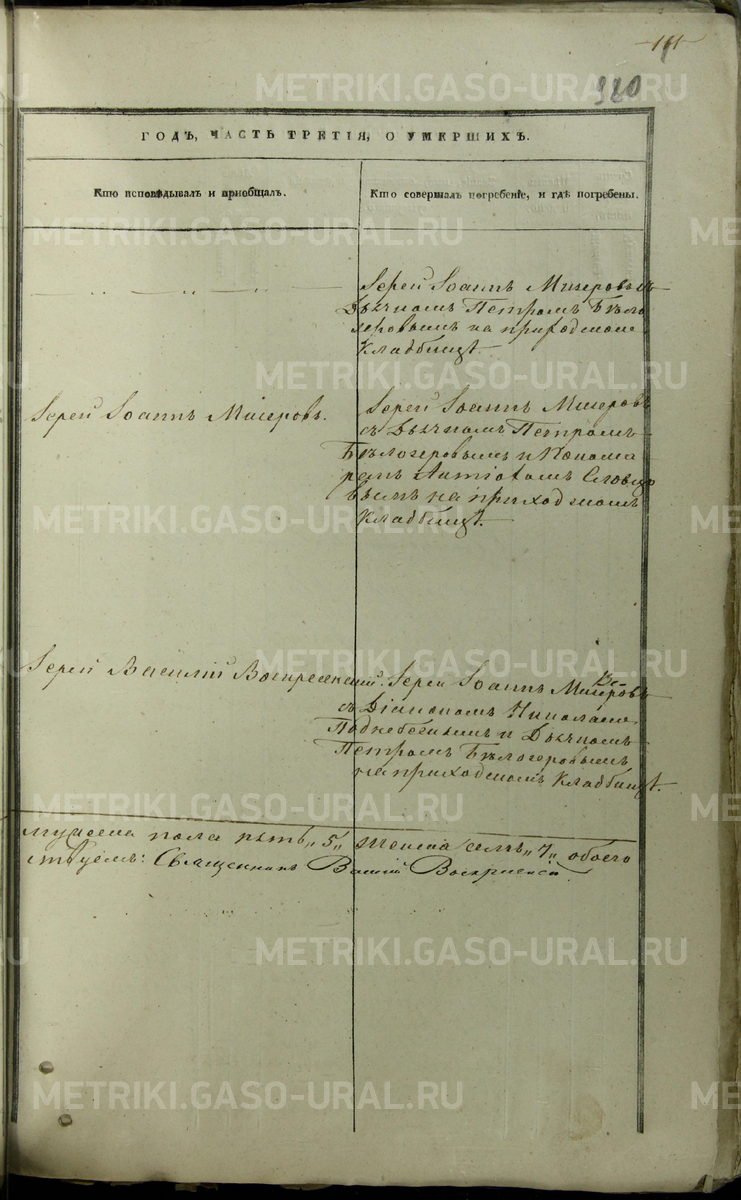 111
920
ГОДЪ, ЧАСТЬ ТРЕТІЯ, О УМЕРШИХЪ.
Кто исповѣдывалъ и пріобщалъ.
Кто совершалъ погребеніе, и гдѣ погребены.
Іерей Іоаннъ Мизеровъ съ
Дьячкомъ Петромъ Бѣло
зеровымъ на приходском
кладбищѣ.
Іерей Іоаннъ Мизеровъ.
Іерей Іоаннъ Мизеровъ
съ Дьячкомъ Петромъ
Бѣлозеровымъ и Понома
ремъ Словцо
вымъ на приходскомъ
кладбищѣ.
Іерей Василій Воскресенский.
Іерей Іоаннъ Мизеровъ
съ Діакономъ Николаем
и Дьячкомъ
Петромъ Бѣлозеровымъ
на приходскомъ кладбищѣ.
мужеска пола пять „5„ женска семь „7„ обоего
Священникъ Василий Воскресенский
METRIKI.GASO-URAL.RU